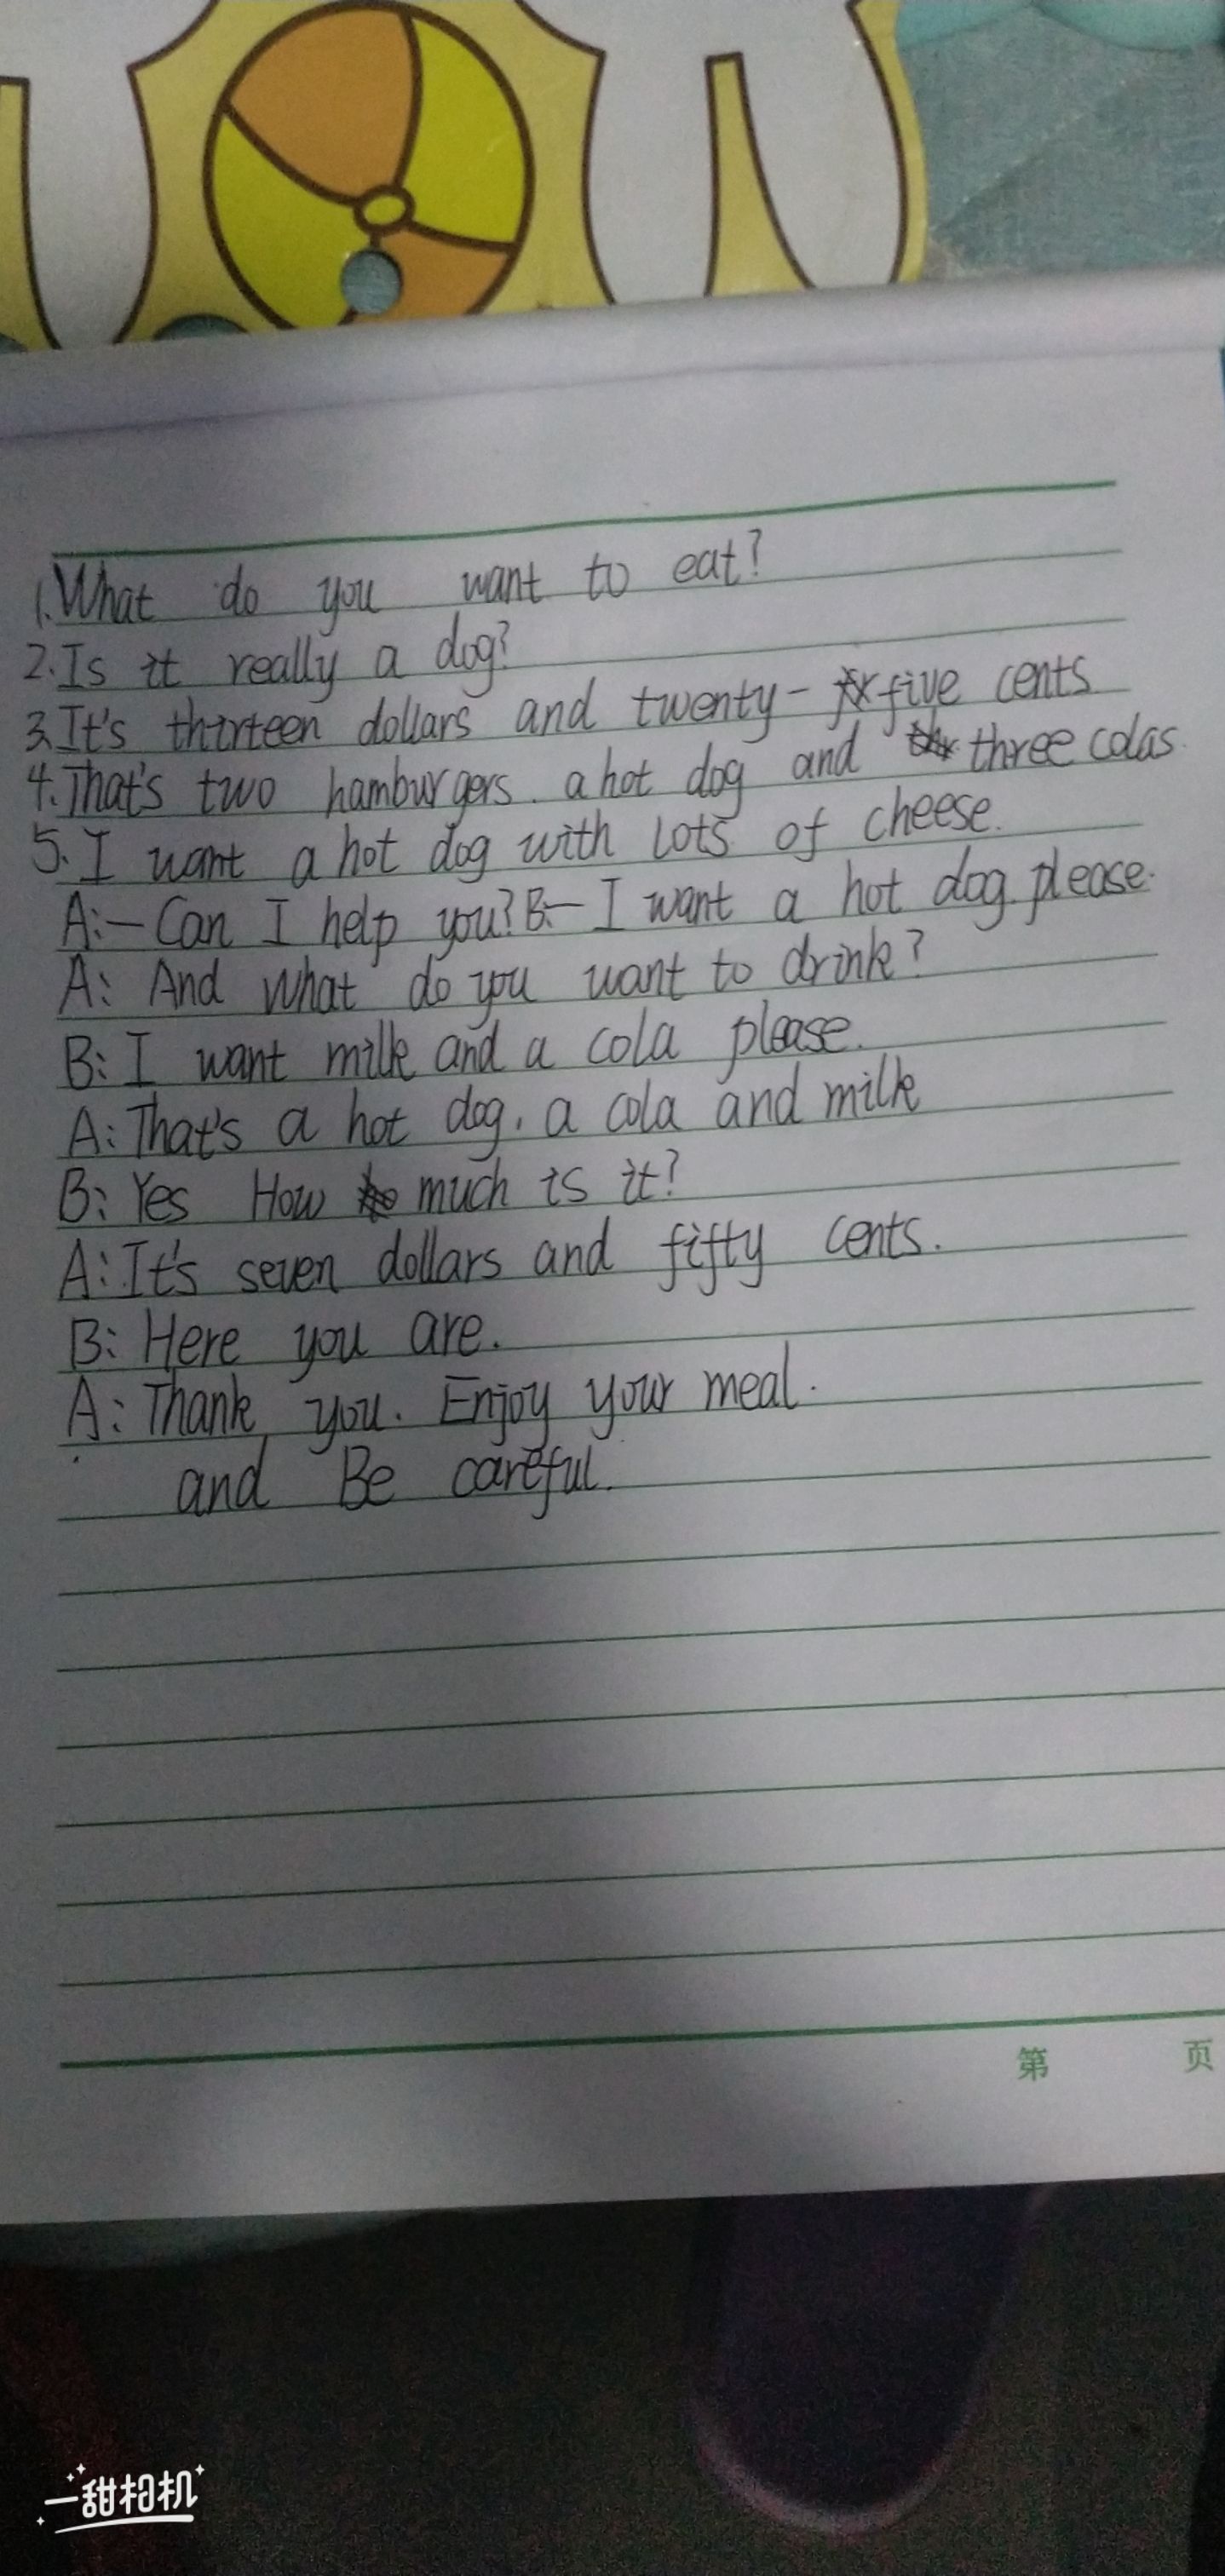 1.What do you want to eat?
2.Is it really a dog?
3.It's thirteen dollars and twenty-five cents
4.That's two hamburgers. a hot dog and three colas
5.I want a hot dog with lots of cheese.
A:-Can I help you?B:-I want a hot dog.please.
A: And what do you want to drink?
B:I want milk and a cola please.
A:That's a hot dog, a cola and milk
B: Yes How much is it?
A:It's seven dollars and fifty cents.
B: Here you are.
A: Thank you. Enjoy your meal.
and Be careful.
第 页
一甜相机